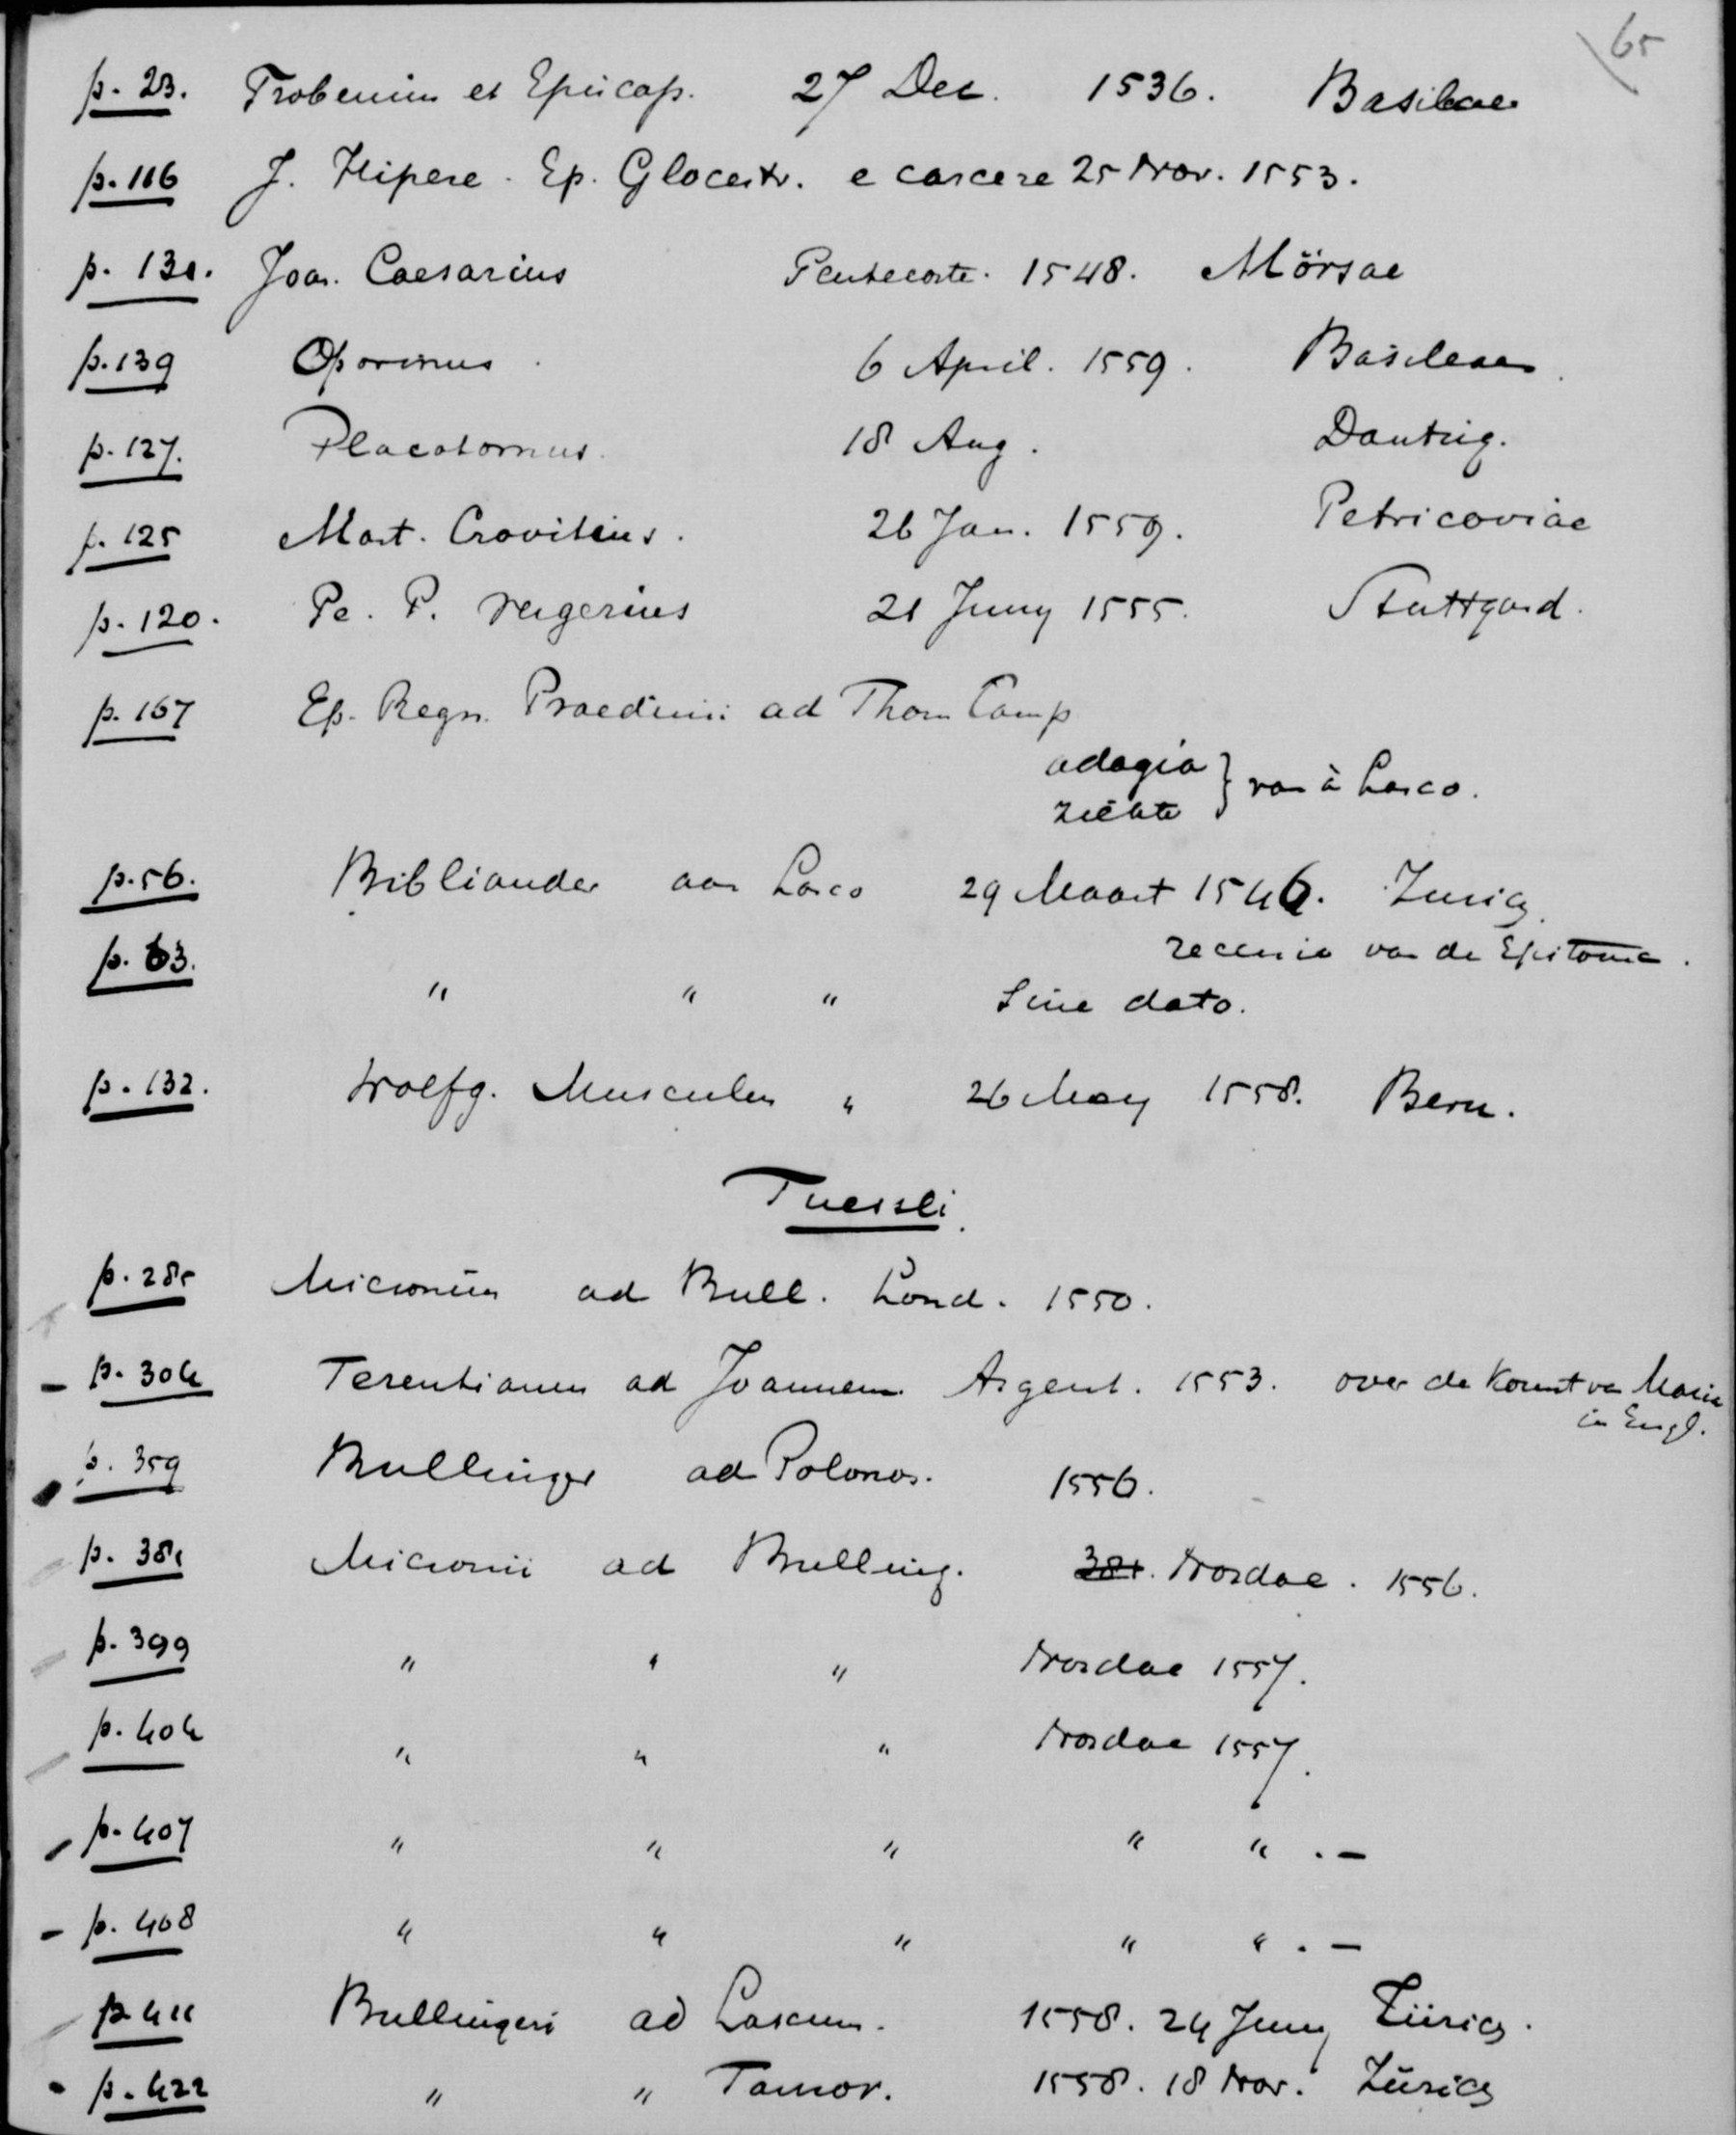 65
p. 23. Frobenium et Episcop. 27 Dec. 1536. Basileae
p. 116 J. Hipere. Ep. Glocestr. e carcere 25 Nov. 1553.
p. 131. Joa. Caesarius Pentecoste. 1548. Mörsae
p. 139 Oporinus. 6 April. 1559. Basileae.
p. 127. Placotomus. 18 Aug. Dantzig.
p. 125 Mart. Crovitius. 26 Jan. 1559. Petricoviae
p. 120. Pe. P. Vergerius 21 Juny 1555. Stuttgard.
p. 167 Ep. Regn. Praedinii ad Thom Camp
adagia
ziekte } van à Lasco.
p. 56. Bibliander aan Lasco 29 Maart 1546. Zurich.
recensio van de Epitome.
p. 63. " " " Sine dato.
p. 132. Wolfg. Musculus " 26 May 1558. Bern.
Fuessli.
p. 285 Micronius ad Bull. Lond. 1550.
- p. 304 Terentianus ad Joannem Argent. 1553. over de komst van Maria
in Engl.
p. 359 Bullinger ad Polonos. 1556.
p. 381 Micronii ad Bulling. 381. Nordae. 1556.
p. 399 " " " Nordae 1557.
p. 404 " " " Nordae 1557.
p. 407 " " " " " . -
- p. 408 " " " " " . -
p. 411 Bullingeri ad Lascum. 1558. 24 Juny Zürich.
p. 422 " " Tarnov. 1558. 18 Nov. Zürich